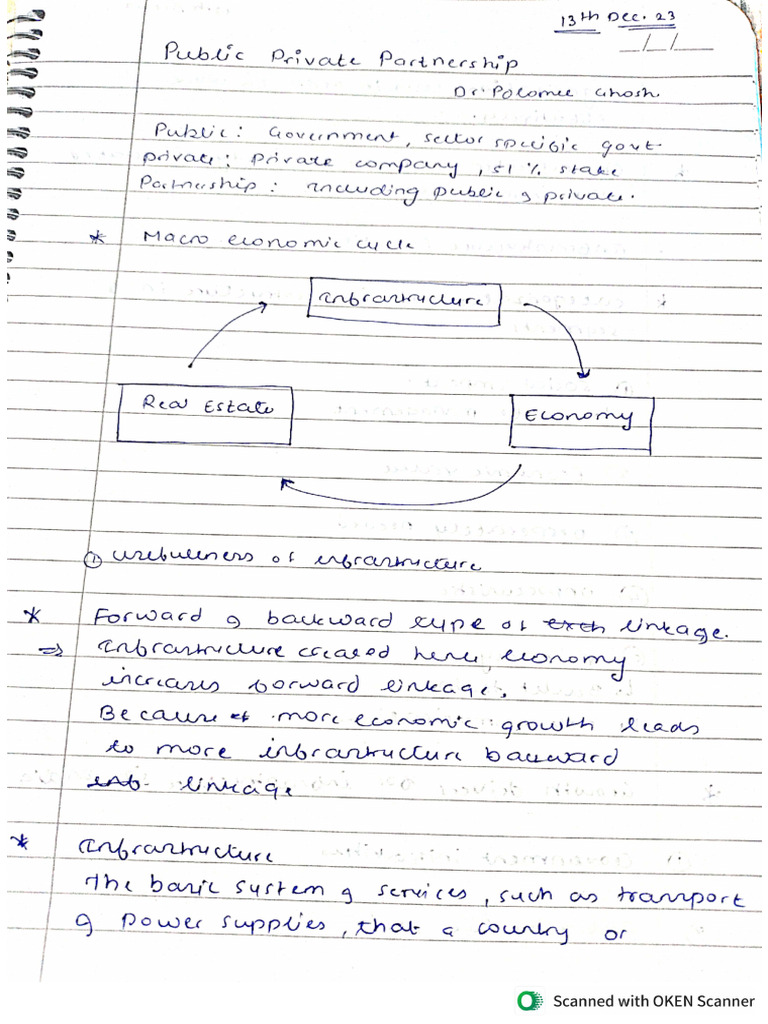 13th Dec. 23
_/_/___
Public Private Partnership
Dr. Polomee Ghosh
Public: Government, sector specific govt.
private: private company, 51 % stake
Partnership: including public & private.
* Macro economic cycle
Infrastructure
Real Estate
Economy
① usefulness of infrastructure
* Forward & backward type of linkage.
⇒ Infrastructure created here, economy
increases forward linkage.
Because more economic growth leads
to more infrastructure backward
linkage
* Infrastructure
The basic system & services, such as transport
& power supplies, that a country or
Scanned with OKEN Scanner